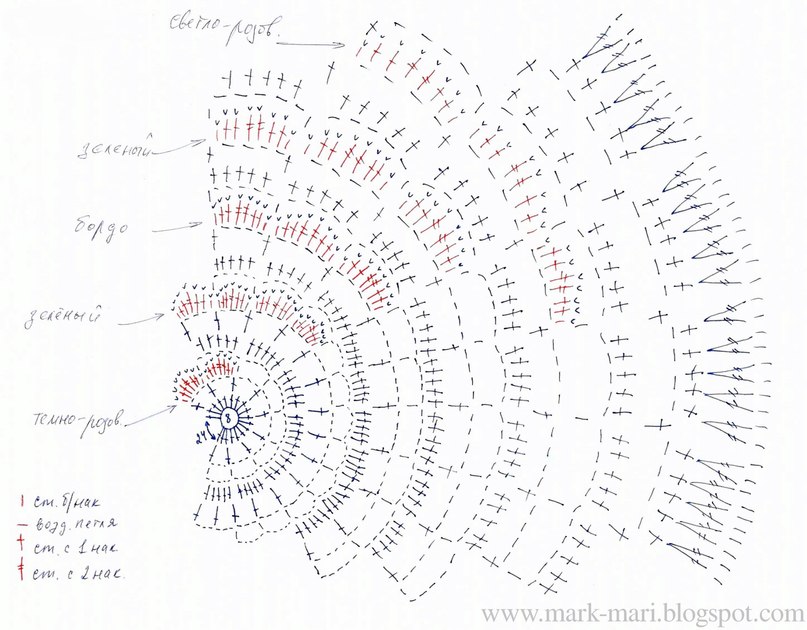 светло-розов.
зеленый
бордо
зелёный
темно-розов.
8
24
ст. б/нак
возд. петля
ст. с 1 нак
ст. с 2 нак.
www.mark-mari.blogspot.com